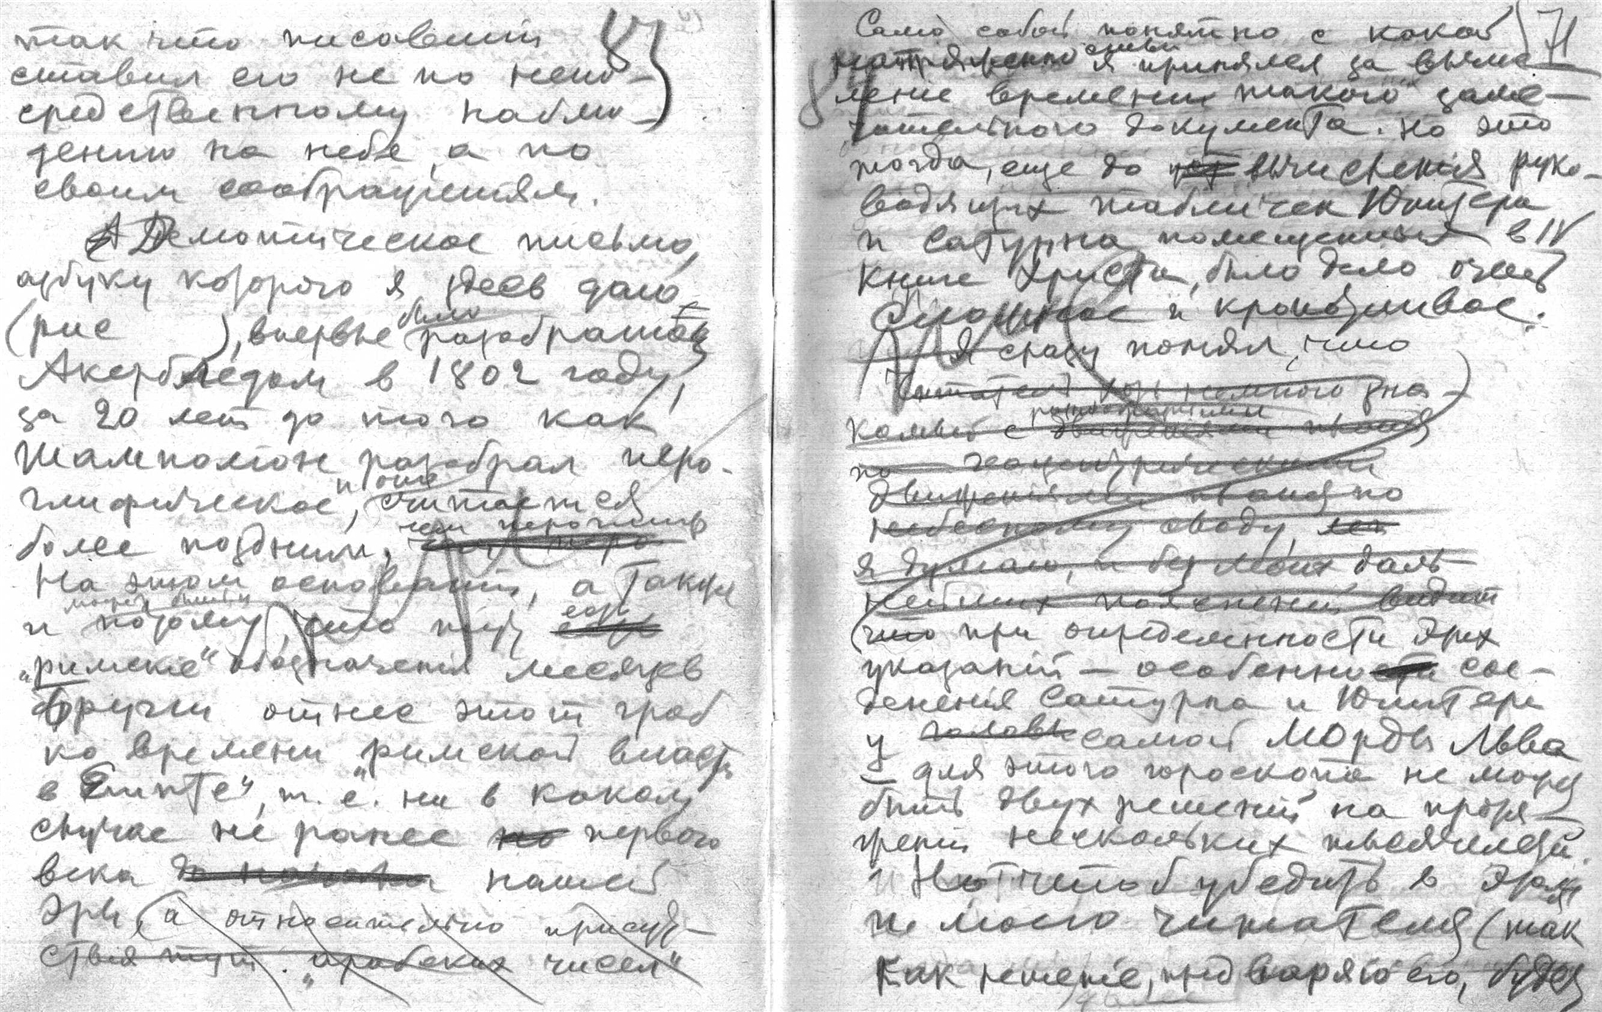 83
так что писавший
ставил его не по непо-
средственному наблю-
дению на небе, а по
своим соображениям.
А Демотическое письмо,
азбуку которого я здесь даю
(рис ), впервые было разобрано
Акербледом в 1802 году,
за 20 лет до того как
Шамполион разобрал иеро-
глифическое, и оно считается
более поздним, чем иероглиф
На этом основании, а также
может быть
и потому, что тут есть
„римские" обозначения месяцев
Бругш отнес этот гроб
ко времени „римской власти
в Египте", т. е. ни в каком
случае не ранее первого
века нашей
эры, (а относительно присут-
ствия тут „арабских чисел"
71
84
Само собой понятно с какой
напряженностью я принялся за вычис
ление времени такого заме-
чательного документа. Но это
тогда, еще до вычисления руко-
водящих табличек Юпитера
и Сатурна помещенных в IV
книге Христа, было дело очень
сложное и кропотливое.
Я сразу понял, что
Читатель хоть немного зна-
комый с
по геоцентрическими
движениями планет по
небесному своду,
я думаю, и без моих даль-
нейших пояснений видит
(что при определенности этих
указаний — особенно сое-
динения Сатурна и Юпитера
у головы самой морды Льва
— для этого гороскопа не может
быть двух решений на протя-
жении нескольких тысячелетий.
Но чтоб убедить в этом
и моего читателя (так
как решение, предваряю его, будет